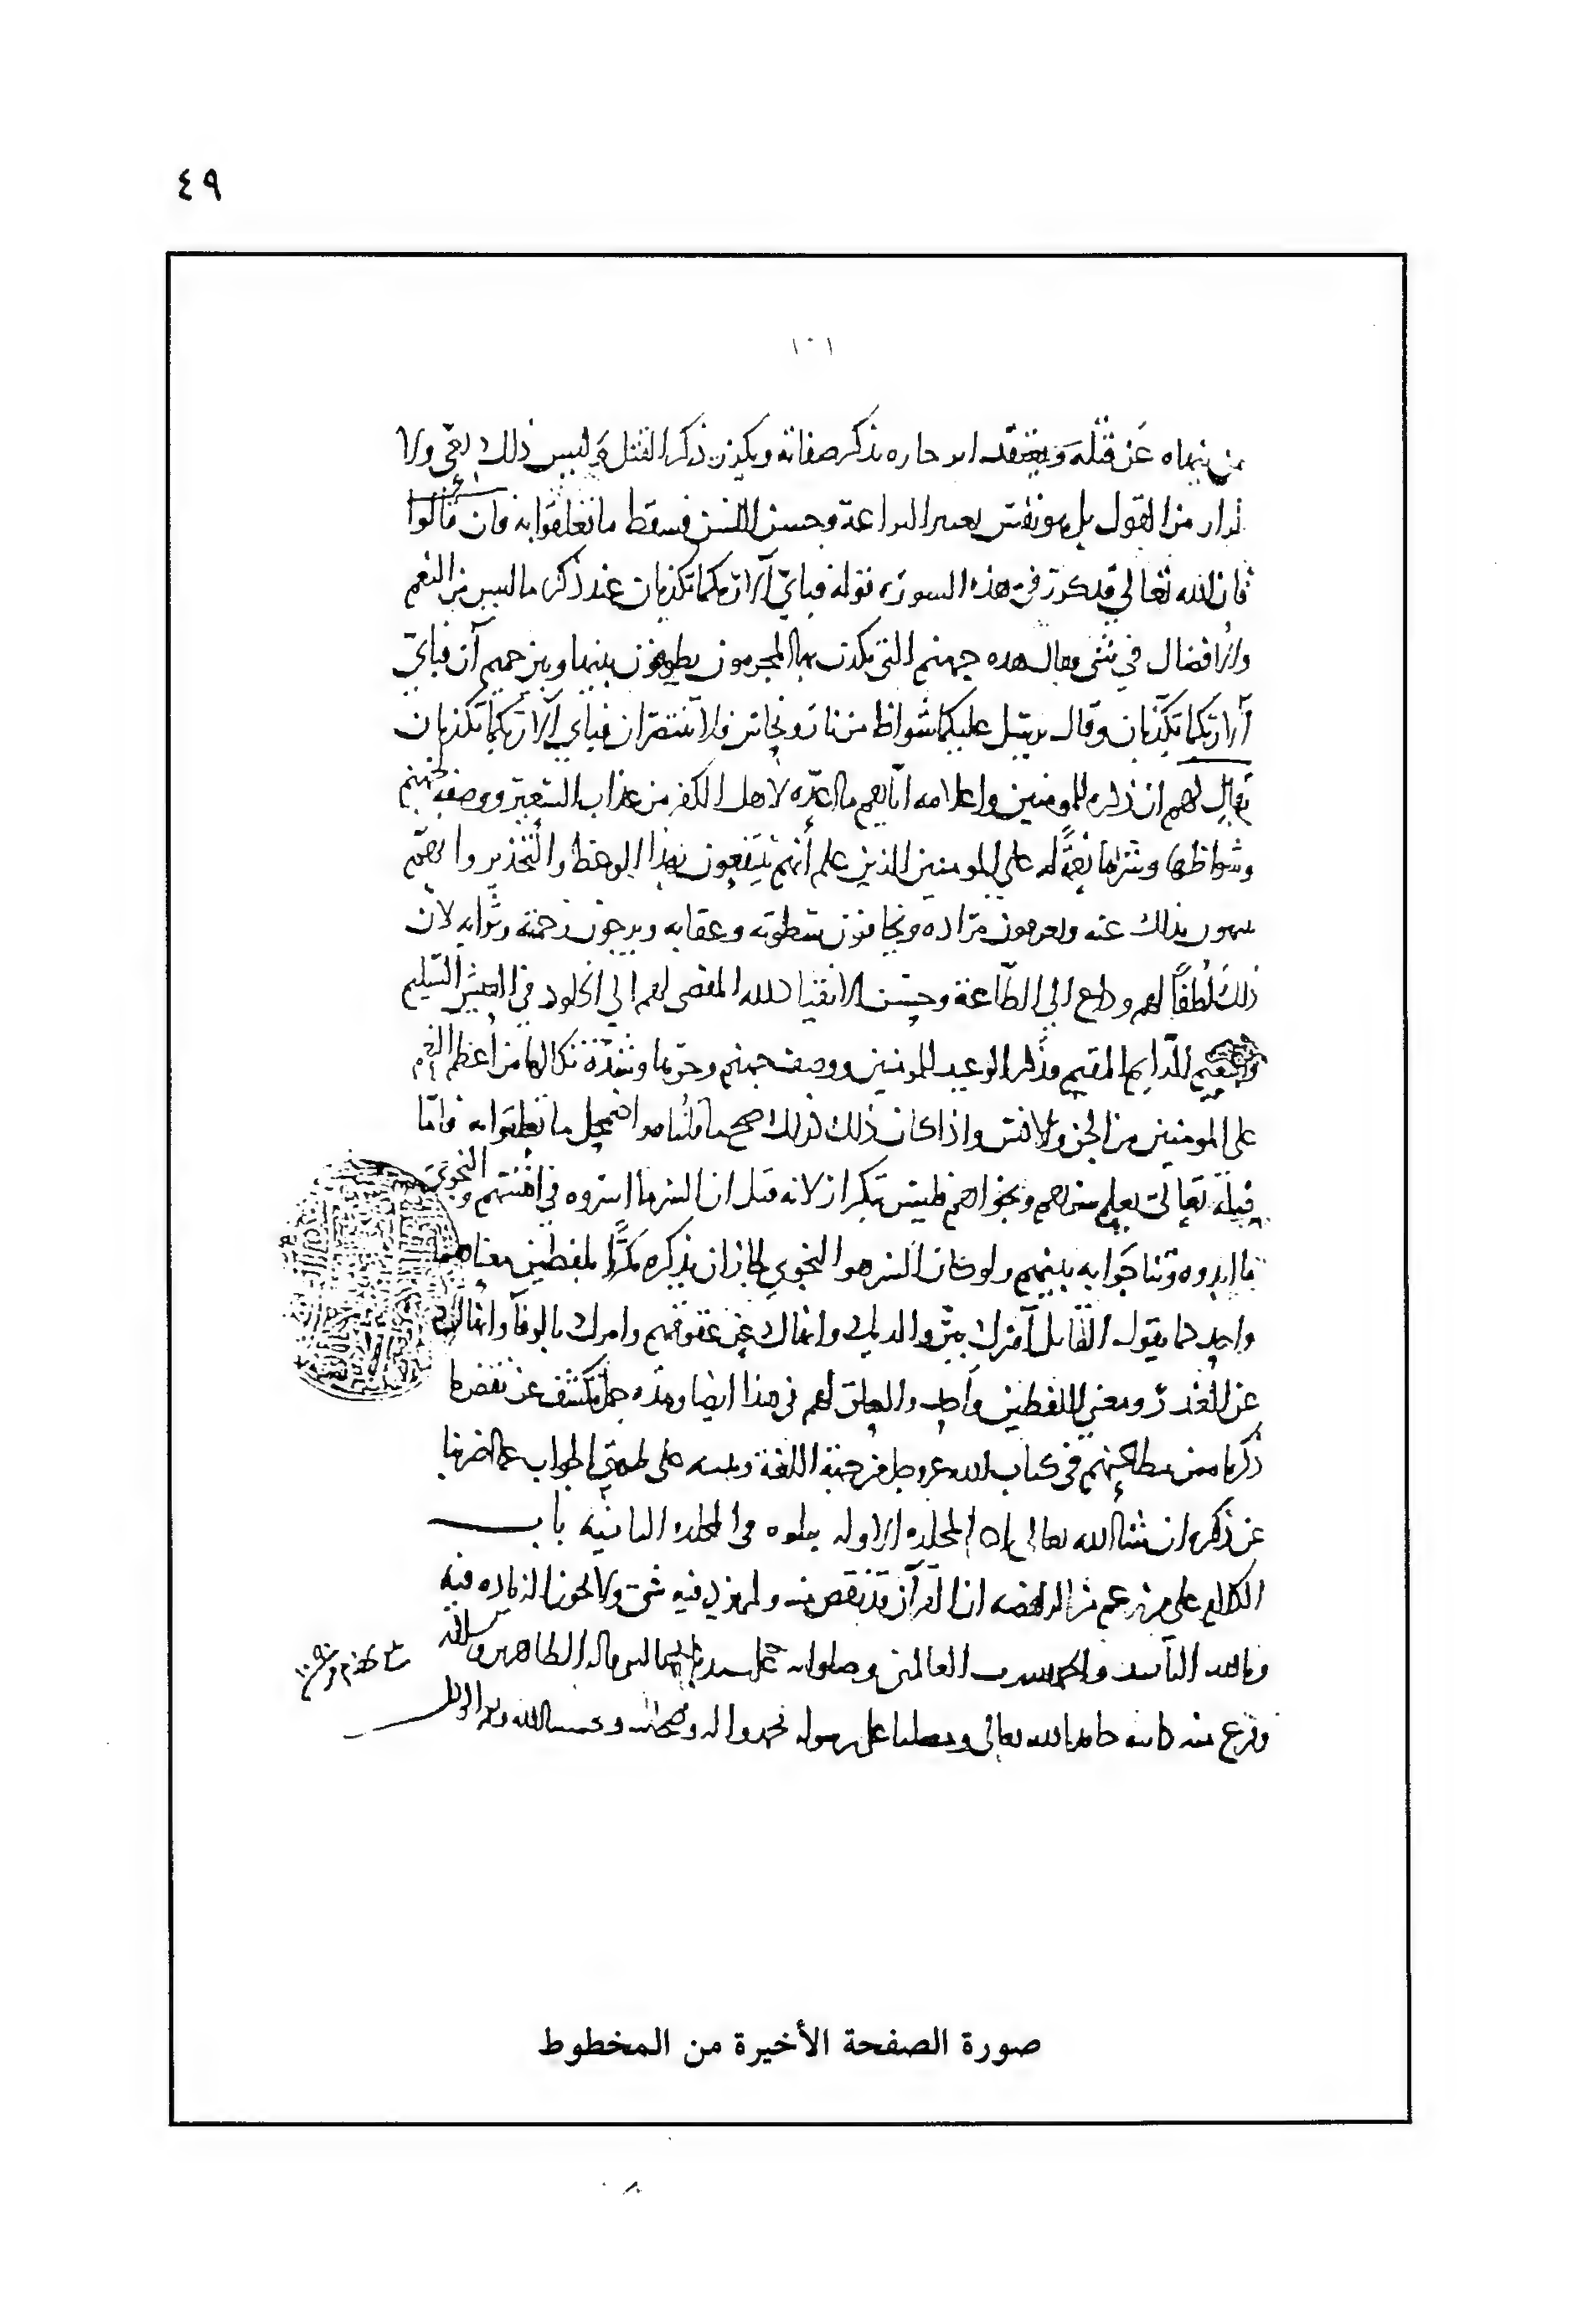 ٤٩
١٠١
من ينهاه عن قتله ويعتقد انه جاره بذكر صفاته ويكون ذكر القتل وليس ذلك بعي ولا
من القول بل هو نفس البراعة وحسن اللسن فسقط ما تعلقوا به فان قالوا
فان الله تعالى قد كرر في هذه السورة قوله فباي آلاء ربكما تكذبان عند ذكر ما ليس من النعم
والافضال في شي فقال هذه جهنم التي يكذب بها المجرمون يطوفون بينها وبين حميم آن فباي
آلاء ربكما تكذبان وقال يرسل عليكما شواظ من نار ونحاس فلا تنتصران فباي آلاء ربكما تكذبان
يقال لهم ان ذكره للمومنين واعلامه اياهم ما اعده لاهل الكفر من عذاب السعير ووصفه جهنم
وشواظها وشررها نعمة له على المومنين الذين علم أنهم ينتفعون بهذا الوعظ والتحذير
بذلك عنه ويعرفون مراده ويخافون سطوته وعقابه ويرجون رحمته وثوابه لان
ذلك لطفا لهم وداع الى الطاعة وحسن الانقياد لله المفضي لهم الى الخلود في العيش السليم
والنعيم الدايم المقيم وذكر الوعيد للمومنين ووصف جهنم وحرها وشدة نكالها من اعظم النعم
على المومنين من الجن والانس واذا كان ذلك كذلك صح ما قلناه واضمحل ما تعلقوا به فاما
قوله تعالى يعلم سرهم ونجواهم فليس بتكرار لانه قيل ان السر ما اسروه في انفسهم والنجوى
ما ابدوه وتناجوا به بينهم ولو كان السر هو النجوى لجاز ان يذكره مكررا بلفظين معناهما
واحد كما يقول القايل آمرك ببر والديك وانهاك عن عقوقهم وامرك بالوفا وانهاك
عن الغدر ومعنى اللفظين واحد ولا تعلق لهم في هذا ايضا وهذه جمل تكشف عن نقض ما
ذكرنا من مطاعنهم في كتاب الله عز وجل من جهة اللغة وتنبه على طريق الجواب عما اضربنا
عن ذكره ان شا الله تعالى اخر المجلده الاوله يتلوه في المجلده الثانيه باب
الكلام على من زعم من الرافضه ان القرآن قد نقص منه ولم يزد فيه شي ولا يجوز الزياده فيه
وبالله التاييد والحمد لله رب العالمين وصلواته على سيدنا محمد النبي واله الطاهرين وسلامه
وفرغ منه كاتبه حامدا لله تعالى ومصليا على رسوله محمد واله وصحبه وحسبنا الله ونعم الوكيل
صورة الصفحة الأخيرة من المخطوط